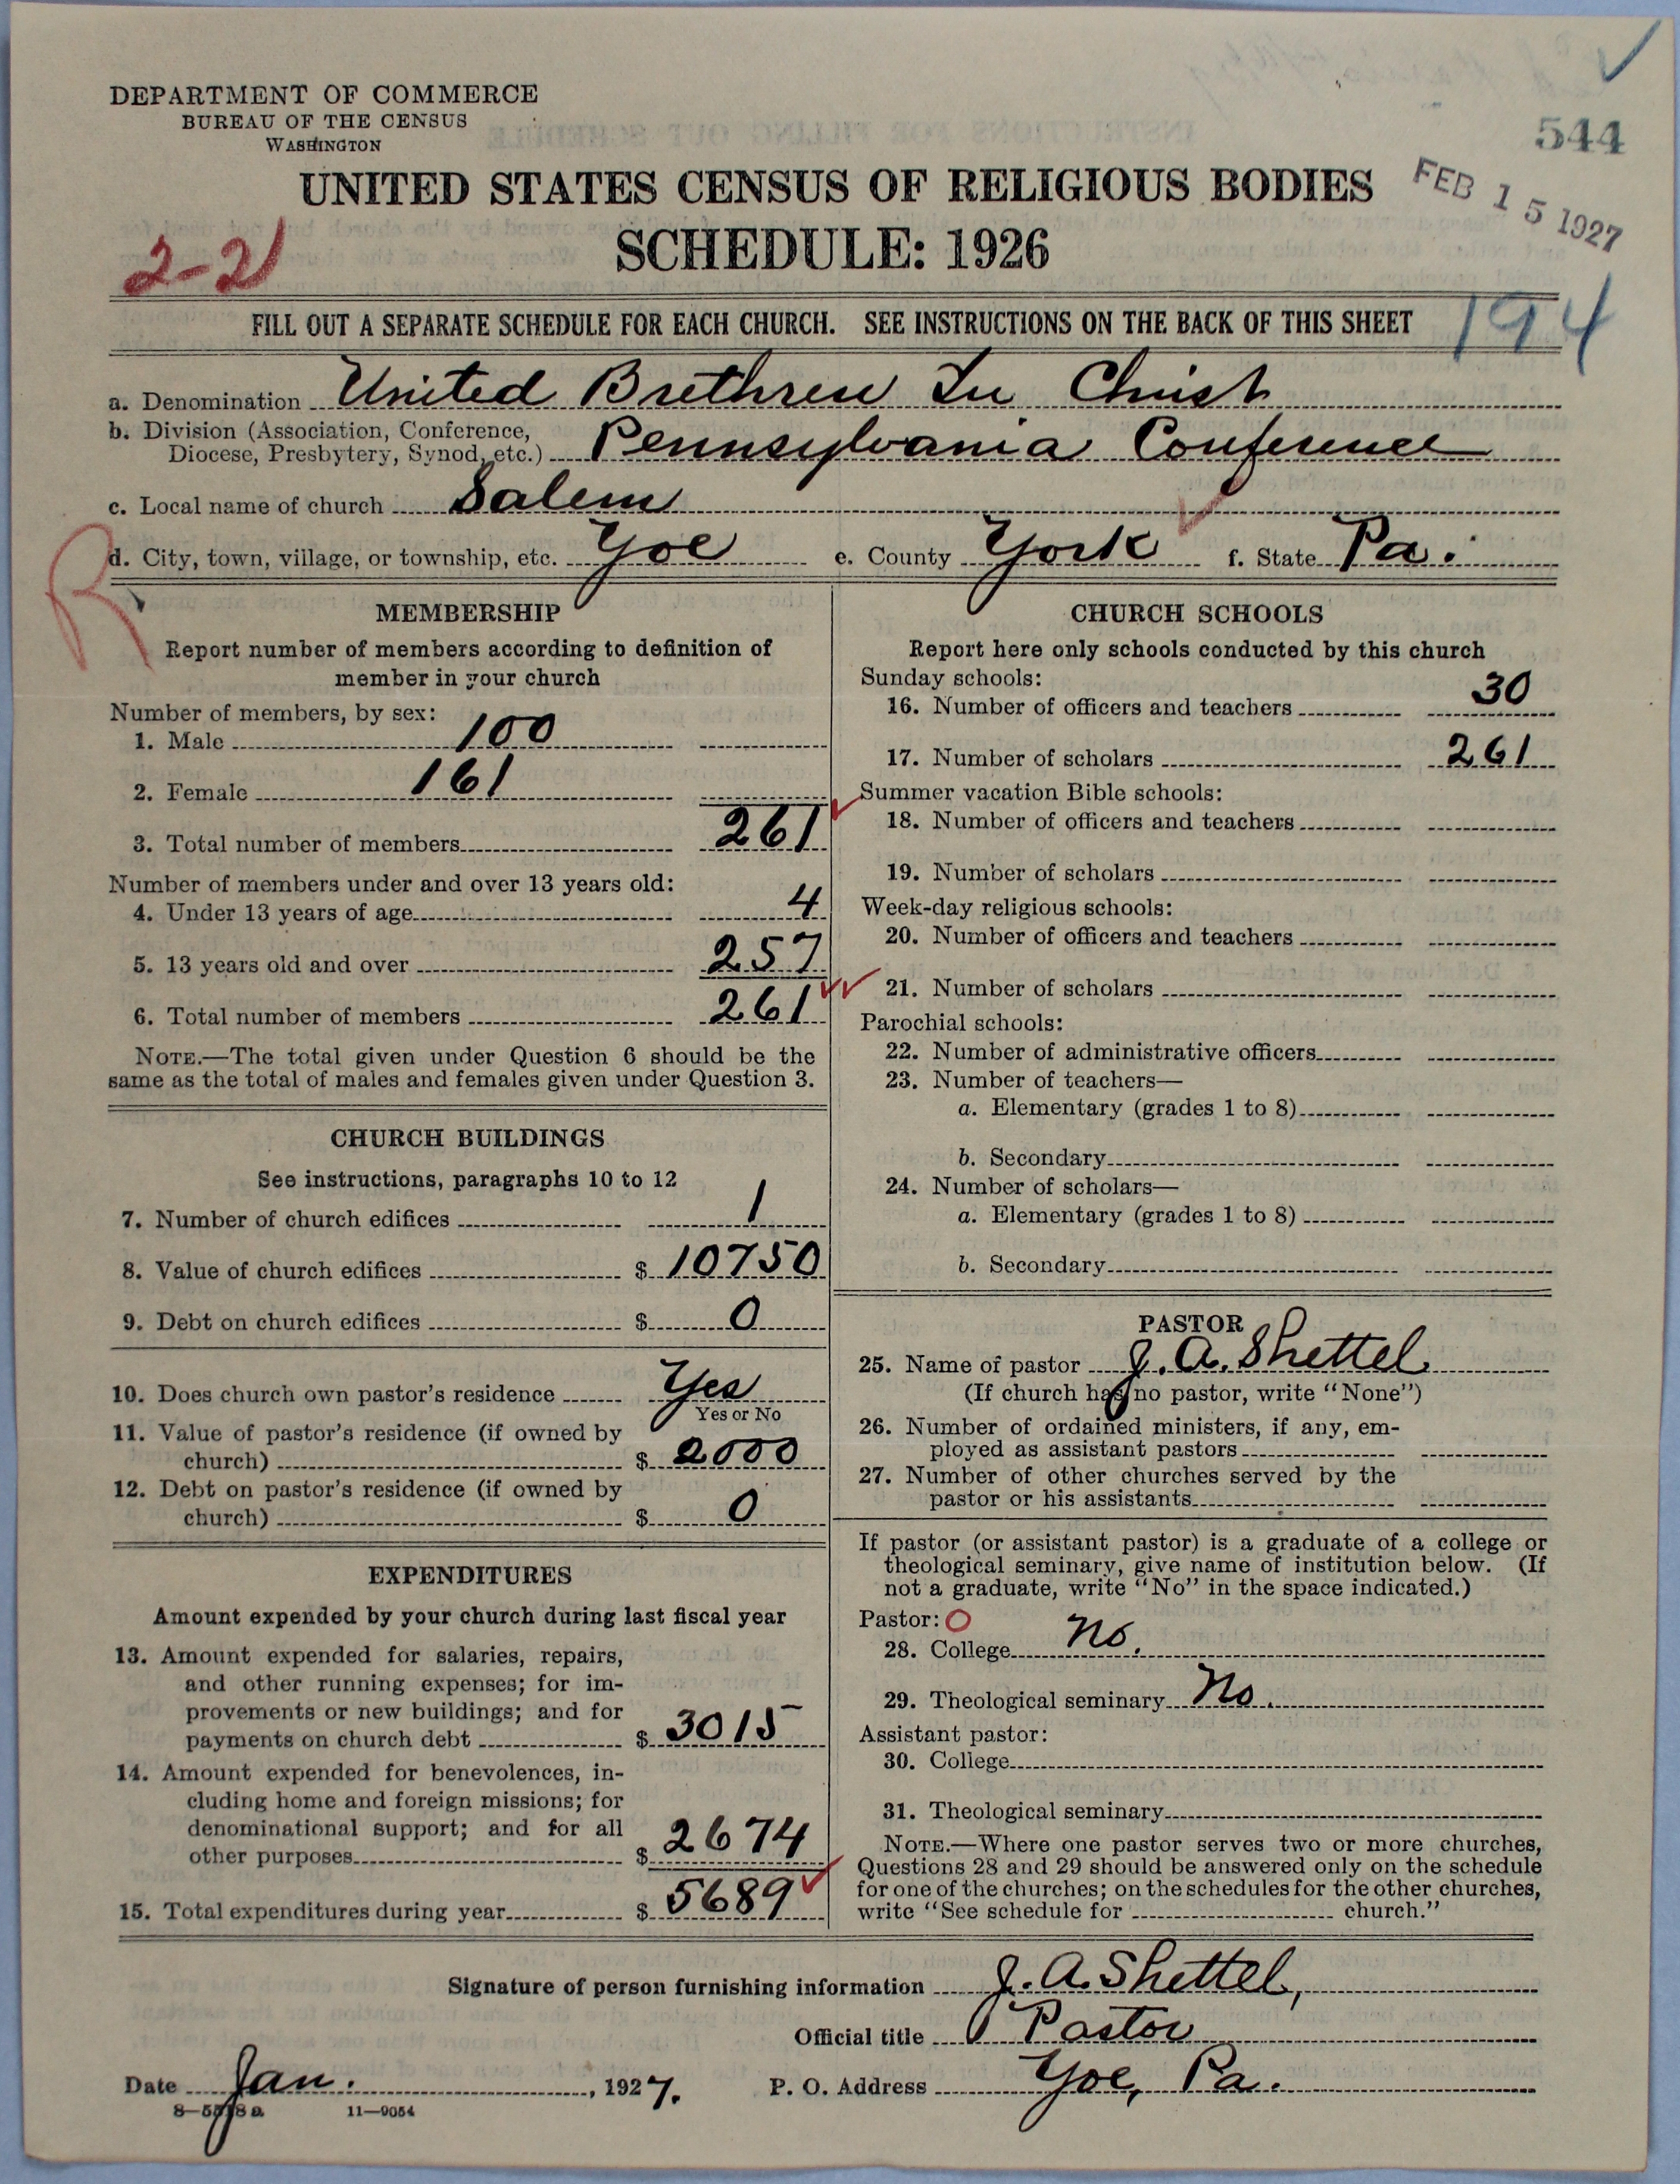 DEPARTMENT OF COMMERCE
BUREAU OF THE CENSUS
WASHINGTON
544
UNITED STATES CENSUS OF RELIGIOUS BODIES
FEB 15 1927
SCHEDULE: 1926
2-21
FILL OUT A SEPARATE SCHEDULE FOR EACH CHURCH. SEE INSTRUCTIONS ON THE BACK OF THIS SHEET
194
a. Denomination United Brethren In Christ
b. Division (Association, Conference,
Diocese, Presbytery, Synod, etc.) Pennsylvania Conference
c. Local name of church Salem
R
d. City, town, village, or township, etc. Yoe e. County York f. State Pa.
MEMBERSHIP
Report number of members according to definition of
member in your church
Number of members, by sex:
1. Male 100
2. Female 161
3. Total number of members 261
Number of members under and over 13 years old:
4. Under 13 years of age 4
5. 13 years old and over 257
6. Total number of members 261
NOTE.—The total given under Question 6 should be the
same as the total of males and females given under Question 3.
CHURCH BUILDINGS
See instructions, paragraphs 10 to 12
7. Number of church edifices 1
8. Value of church edifices $ 10750
9. Debt on church edifices $ 0
10. Does church own pastor's residence Yes
Yes or No
11. Value of pastor's residence (if owned by
church) $ 2000
12. Debt on pastor's residence (if owned by
church) $ 0
EXPENDITURES
Amount expended by your church during last fiscal year
13. Amount expended for salaries, repairs,
and other running expenses; for im-
provements or new buildings; and for
payments on church debt $ 3015
14. Amount expended for benevolences, in-
cluding home and foreign missions; for
denominational support; and for all
other purposes $ 2674
15. Total expenditures during year $ 5689
CHURCH SCHOOLS
Report here only schools conducted by this church
Sunday schools:
16. Number of officers and teachers 30
17. Number of scholars 261
Summer vacation Bible schools:
18. Number of officers and teachers
19. Number of scholars
Week-day religious schools:
20. Number of officers and teachers
21. Number of scholars
Parochial schools:
22. Number of administrative officers
23. Number of teachers—
a. Elementary (grades 1 to 8)
b. Secondary
24. Number of scholars—
a. Elementary (grades 1 to 8)
b. Secondary
PASTOR
25. Name of pastor J. A. Shettel
(If church has no pastor, write "None")
26. Number of ordained ministers, if any, em-
ployed as assistant pastors
27. Number of other churches served by the
pastor or his assistants
If pastor (or assistant pastor) is a graduate of a college or
theological seminary, give name of institution below. (If
not a graduate, write "No" in the space indicated.)
Pastor: O
28. College No.
29. Theological seminary No.
Assistant pastor:
30. College
31. Theological seminary
NOTE.—Where one pastor serves two or more churches,
Questions 28 and 29 should be answered only on the schedule
for one of the churches; on the schedules for the other churches,
write "See schedule for church."
Signature of person furnishing information J. A. Shettel,
Official title Pastor
Date Jan. , 1927. P. O. Address Yoe, Pa.
8—5518 a 11—9054